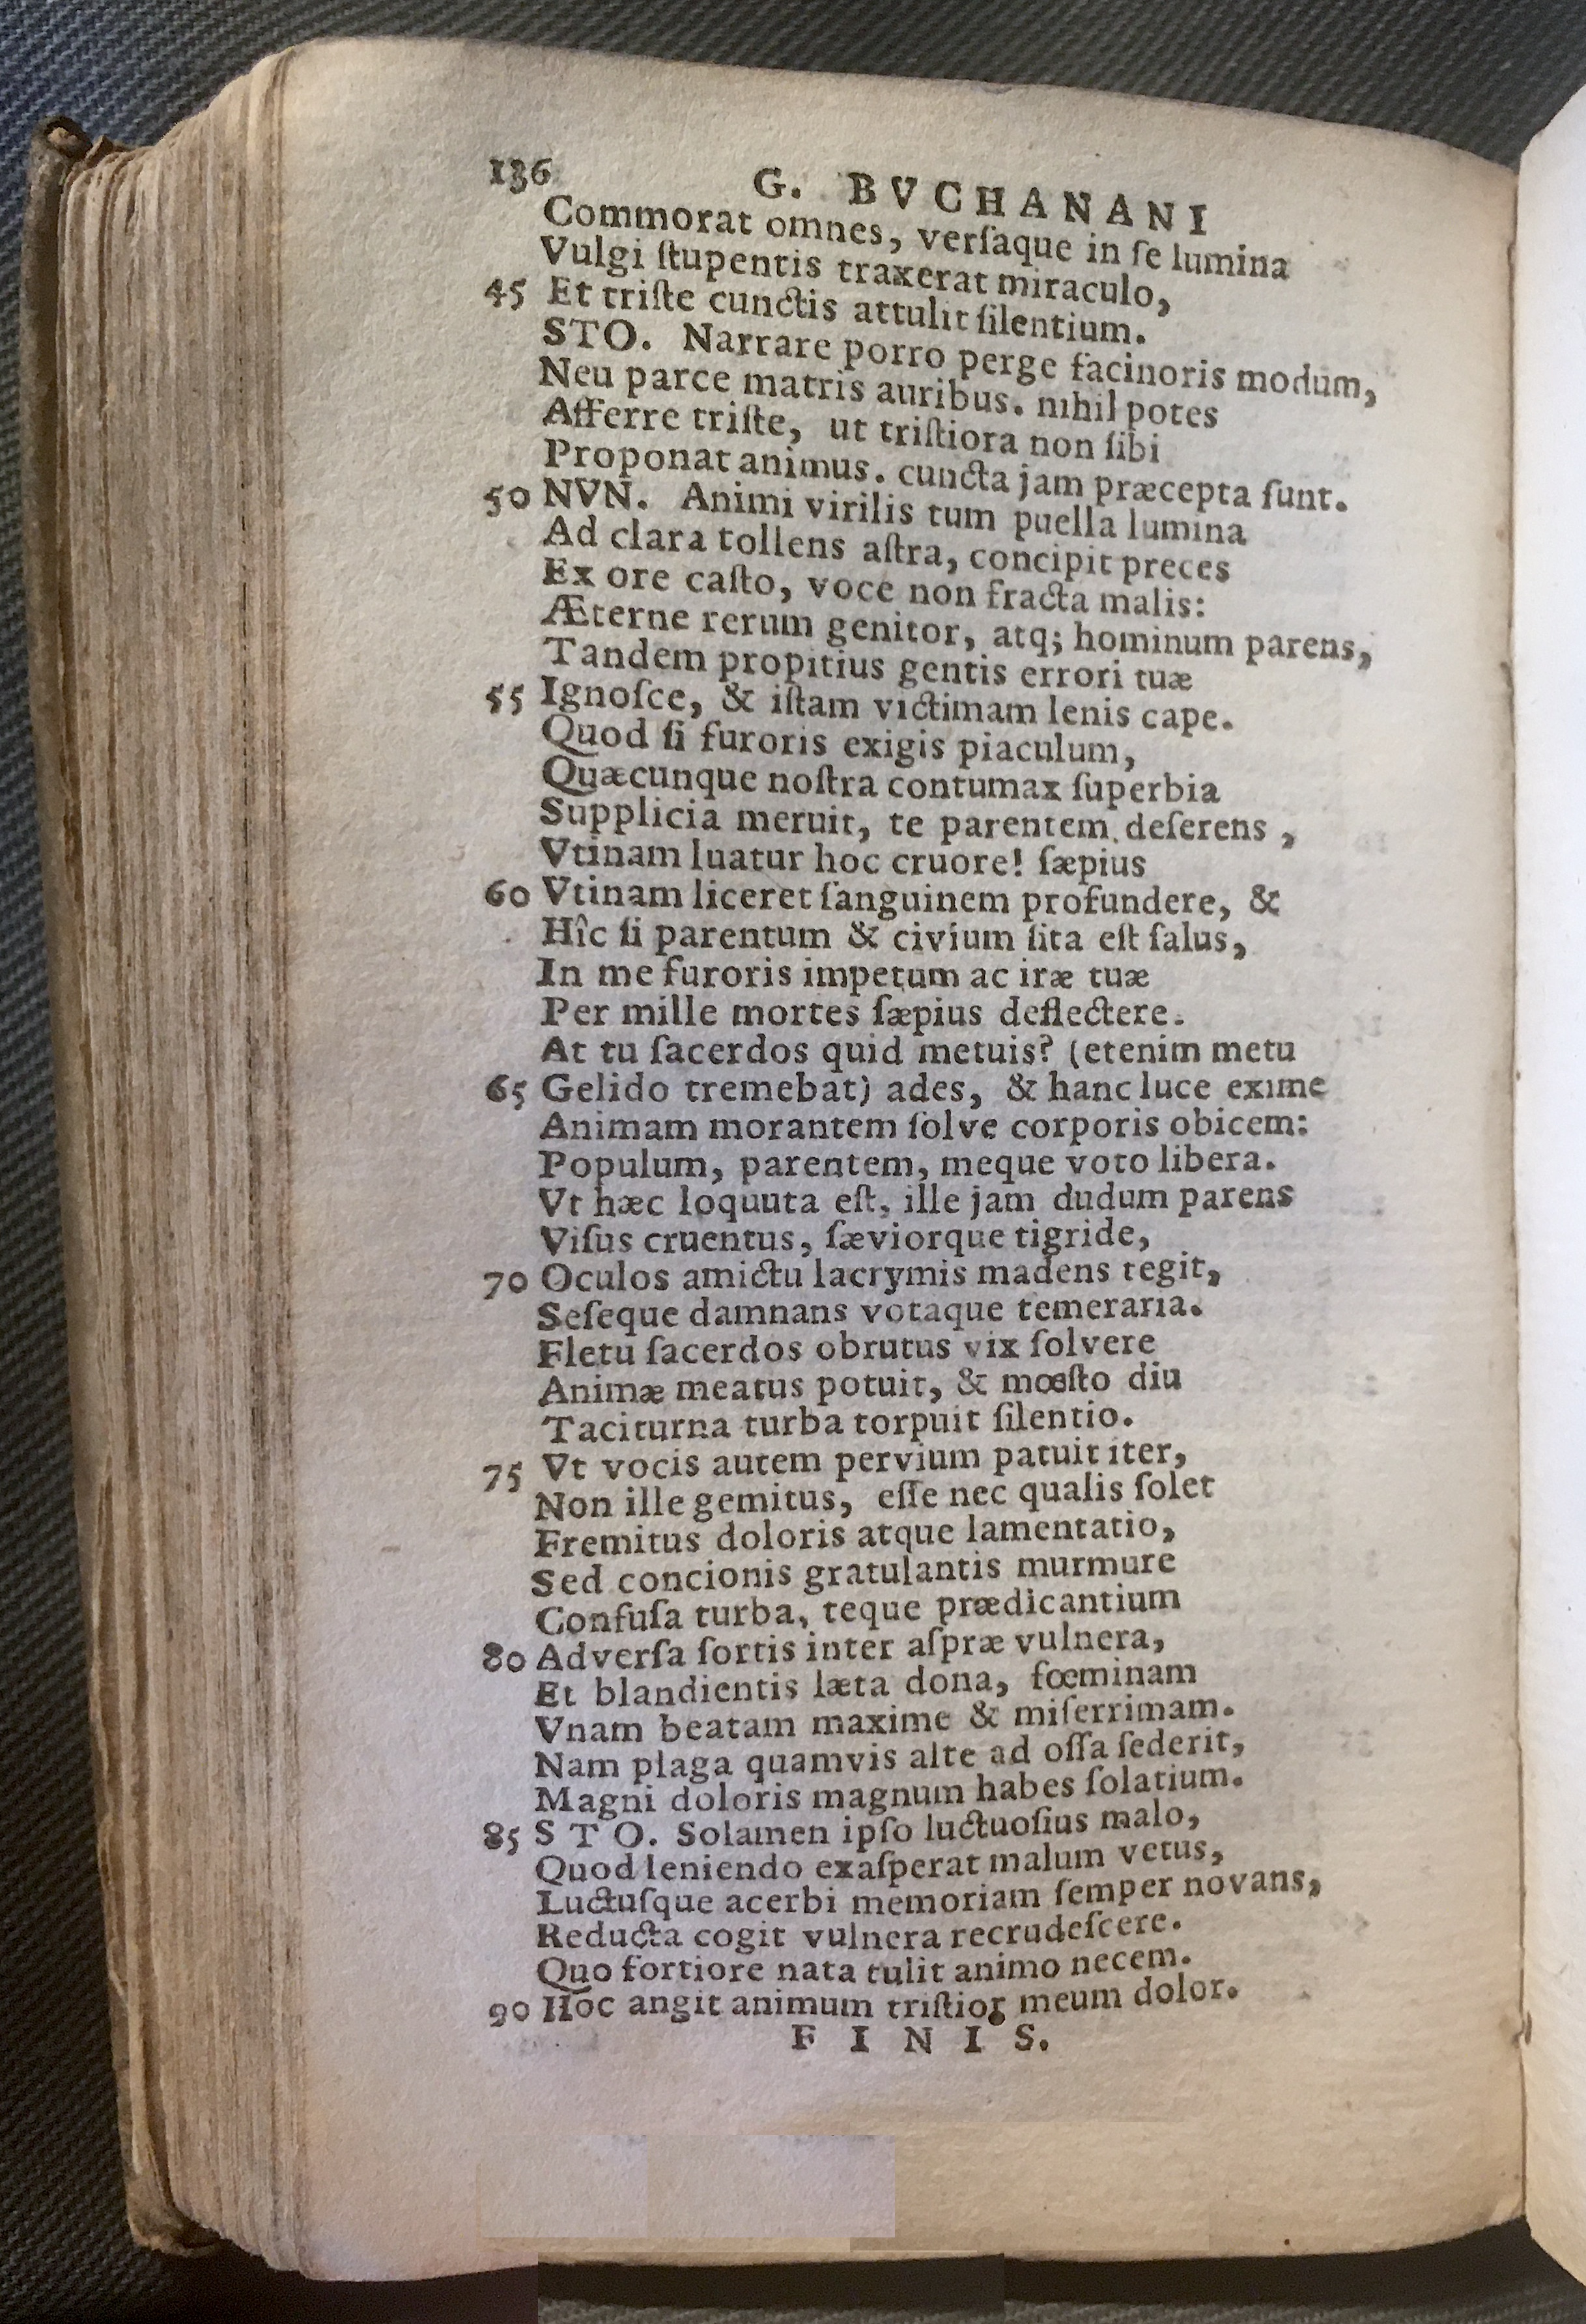 136
G. BVCHANANI
Commorat omnes, verſaque in ſe lumina
Vulgi ſtupentis traxerat miraculo,
45 Et triſte cunctis attulit ſilentium.
STO. Narrare porro perge facinoris modum,
Neu parce matris auribus. nihil potes
Afferre triſte, ut triſtiora non ſibi
Proponat animus. cuncta jam præcepta ſunt.
50 NVN. Animi virilis tum puella lumina
Ad clara tollens aſtra, concipit preces
Ex ore caſto, voce non fracta malis:
Æterne rerum genitor, atq; hominum parens,
Tandem propitius gentis errori tuæ
55 Ignoſce, & iſtam victimam lenis cape.
Quod ſi furoris exigis piaculum,
Quæcunque noſtra contumax ſuperbia
Supplicia meruit, te parentem deſerens,
Vtinam luatur hoc cruore! ſæpius
60 Vtinam liceret ſanguinem profundere, &
Hîc ſi parentum & civium ſita eſt ſalus,
In me furoris impetum ac iræ tuæ
Per mille mortes ſæpius deflectere.
At tu ſacerdos quid metuis? (etenim metu
65 Gelido tremebat) ades, & hanc luce exime
Animam morantem ſolve corporis obicem:
Populum, parentem, meque voto libera.
Vt hæc loquuta eſt, ille jam dudum parens
Viſus cruentus, ſæviorque tigride,
70 Oculos amictu lacrymis madens tegit,
Seſeque damnans votaque temeraria.
Fletu ſacerdos obrutus vix ſolvere
Animæ meatus potuit, & mœſto diu
Taciturna turba torpuit ſilentio.
75 Vt vocis autem pervium patuit iter,
Non ille gemitus, eſſe nec qualis ſolet
Fremitus doloris atque lamentatio,
Sed concionis gratulantis murmure
Confuſa turba, teque prædicantium
80 Adverſa ſortis inter aſpræ vulnera,
Et blandientis læta dona, fœminam
Vnam beatam maxime & miſerrimam.
Nam plaga quamvis alte ad oſſa ſederit,
Magni doloris magnum habes ſolatium.
85 STO. Solamen ipſo luctuoſius malo,
Quod leniendo exaſperat malum vetus,
Luctuſque acerbi memoriam ſemper novans,
Reducta cogit vulnera recrudeſcere.
Quo fortiore nata tulit animo necem.
90 Hoc angit animum triſtior meum dolor.
FINIS.